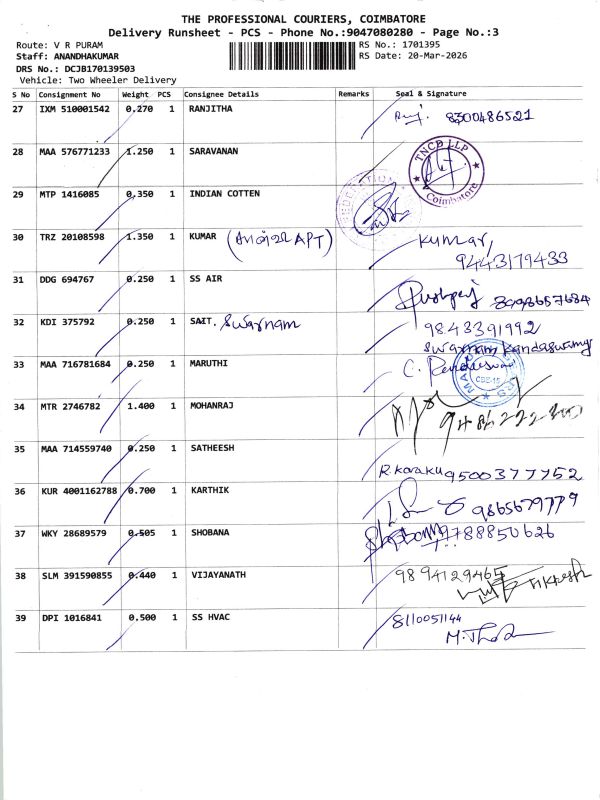 THE PROFESSIONAL COURIERS, COIMBATORE
Delivery Runsheet - PCS - Phone No.:9047080280 - Page No.:3
Route: V R PURAM
RS No.: 1701395
Staff: ANANDHAKUMAR
RS Date: 20-Mar-2026
DRS No.: DCJB170139503
Vehicle: Two Wheeler Delivery
S No Consignment No Weight PCS Consignee Details Remarks Seal & Signature
27 IXM 510001542 0.270 1 RANJITHA 8300486521
28 MAA 576771233 1.250 1 SARAVANAN TNCD LLP Coimbatore
29 MTP 1416085 0.350 1 INDIAN COTTEN
30 TRZ 20108598 1.350 1 KUMAR APT) Kumar,
9443179433
31 DDG 694767 0.250 1 SS AIR
32 KDI 375792 0.250 1 SAIT. Swarnam 9843391992
Swarnam Kandaswamy
33 MAA 716781684 0.250 1 MARUTHI CBE-15
34 MTR 2746782 1.400 1 MOHANRAJ
35 MAA 714559740 0.250 1 SATHEESH 9500377752
36 KUR 4001162788 0.700 1 KARTHIK 9865679779
37 WKY 28689579 0.505 1 SHOBANA 9788850626
38 SLM 391590855 0.440 1 VIJAYANATH 9894129465
39 DPI 1016841 0.500 1 SS HVAC 8110051144